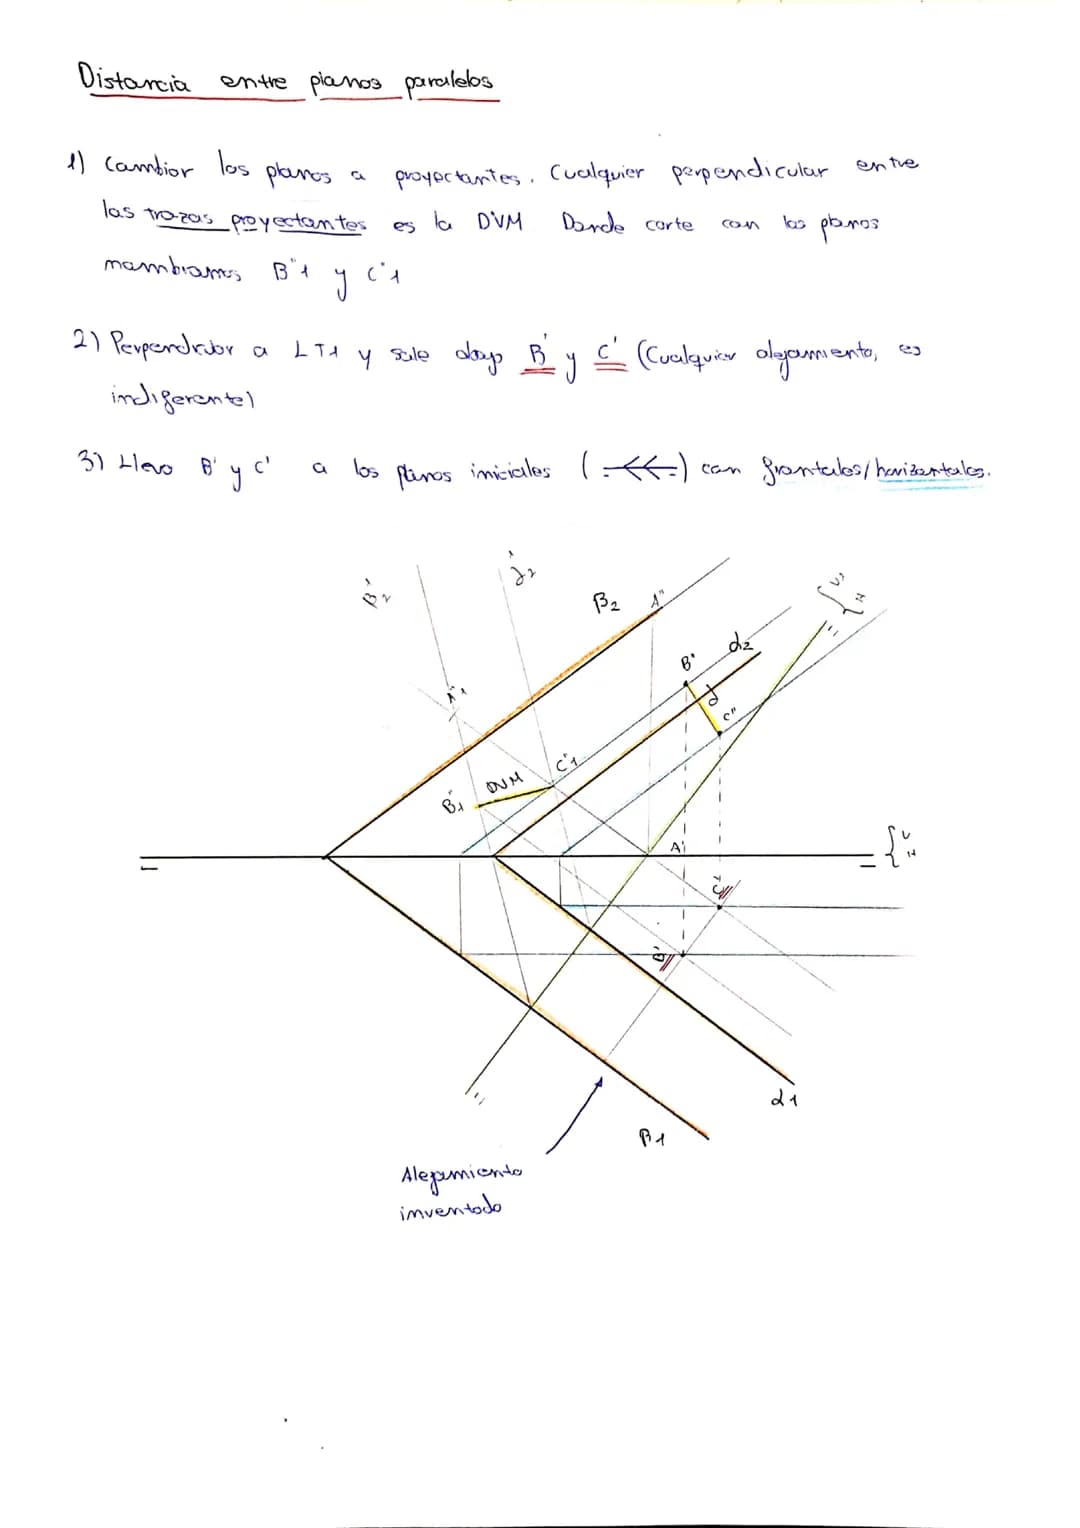 Distancia entre planos paralelos
1) Cambiar los planos a proyectantes. Cualquier perpendicular entre
las trazas proyectantes es la DVM Donde corte con los planos
nombramos B"1 y C"1
2) Perpendicular a LT1 y sale abajo B' y C' (Cualquier alejamiento, es
indiferente)
3) Llevo B' y C' a los planos iniciales ( ) con frontales/horizontales.
β'2
α'2
β2
A"
V'
H
α2
B"
d
C"
A"1
C"1
DVM
B"1
A'
V
H
C'
B'
α1
β1
Alejamiento
inventado